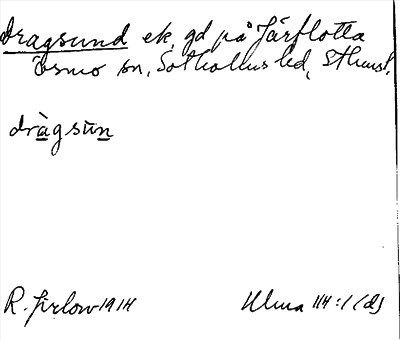 Dragsund ek. gd på Järflotta
Ösmo sn, Sotholms hd, Sthmsl.
dràgsūn
R. Jirlow 1914
Ulma 114:1 (d)